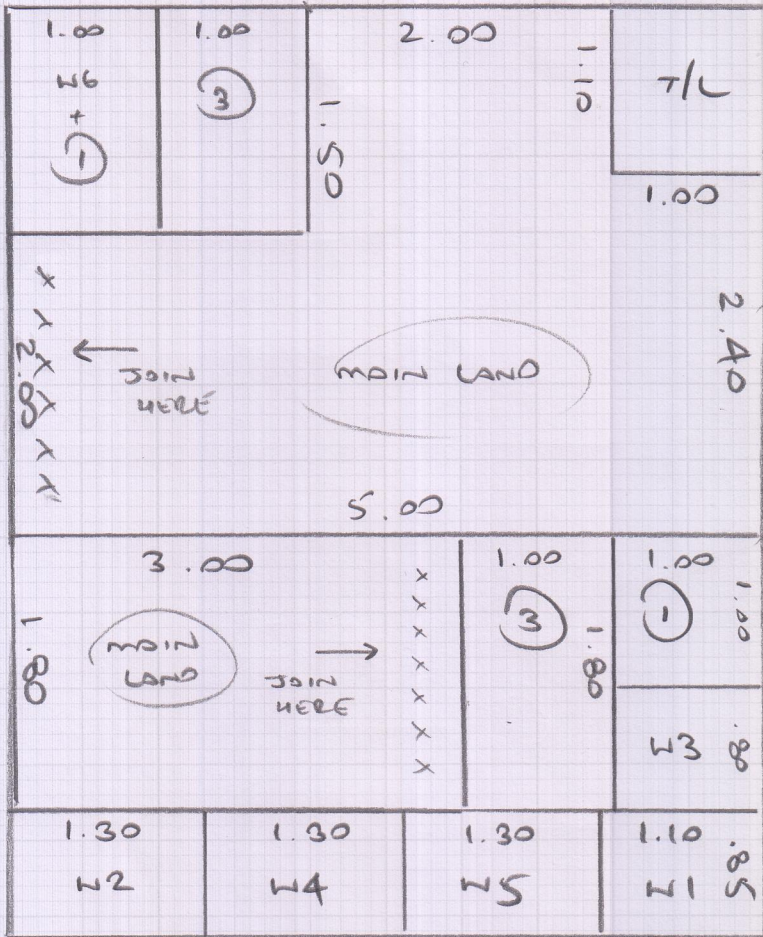 1.00
W6 + ①
1.00
③
1.50
2.00
1.10
T/L
1.00
2.40
x x x x x x
2.00
← JOIN
HERE
MAIN LAND
5.00
3.00
1.80
MAIN
LAND
JOIN →
HERE
x x x x x x x
1.00
③
1.80
1.00
①
1.00
W3
.80
1.30
W2
1.30
W4
1.30
W5
1.10
W1
.85